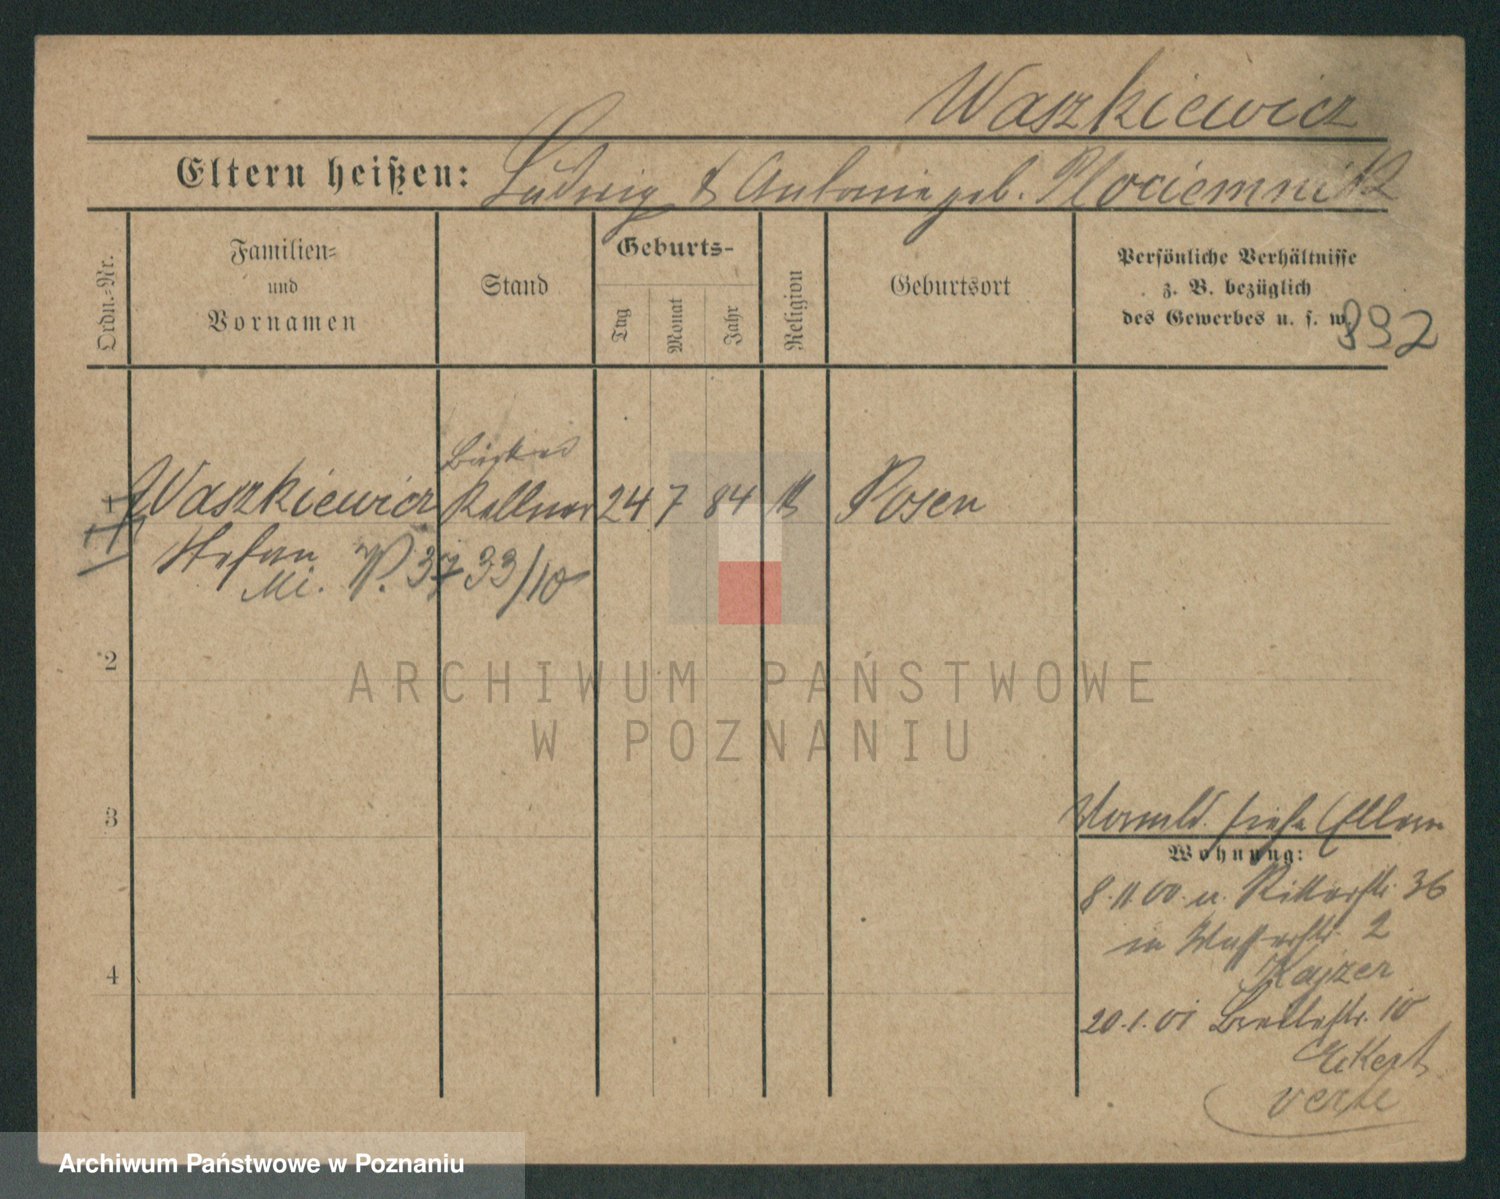 Waszkiewicz
Eltern heißen: Ludwig & Antonie geb. Plociemnik
Ordn.-Nr.
Familien-
und
Vornamen
Stand
Geburts-
Tag
Monat
Jahr
Religion
Geburtsort
Persönliche Verhältnisse
z. B. bezüglich
des Gewerbes u. s. w.
892
1 Waszkiewicz Kellner 24 7 84 Posen
Stefan
Mi. P. 3733/10
2
3
4
ARCHIWUM PAŃSTWOWE
W POZNANIU
siehe Eltern
Wohnung:
8.11.00. u. Ritterstr. 36
in Wasserstr. 2
Kajzer
20.1.01 Breitestr. 10
Eckert
verte
Archiwum Państwowe w Poznaniu